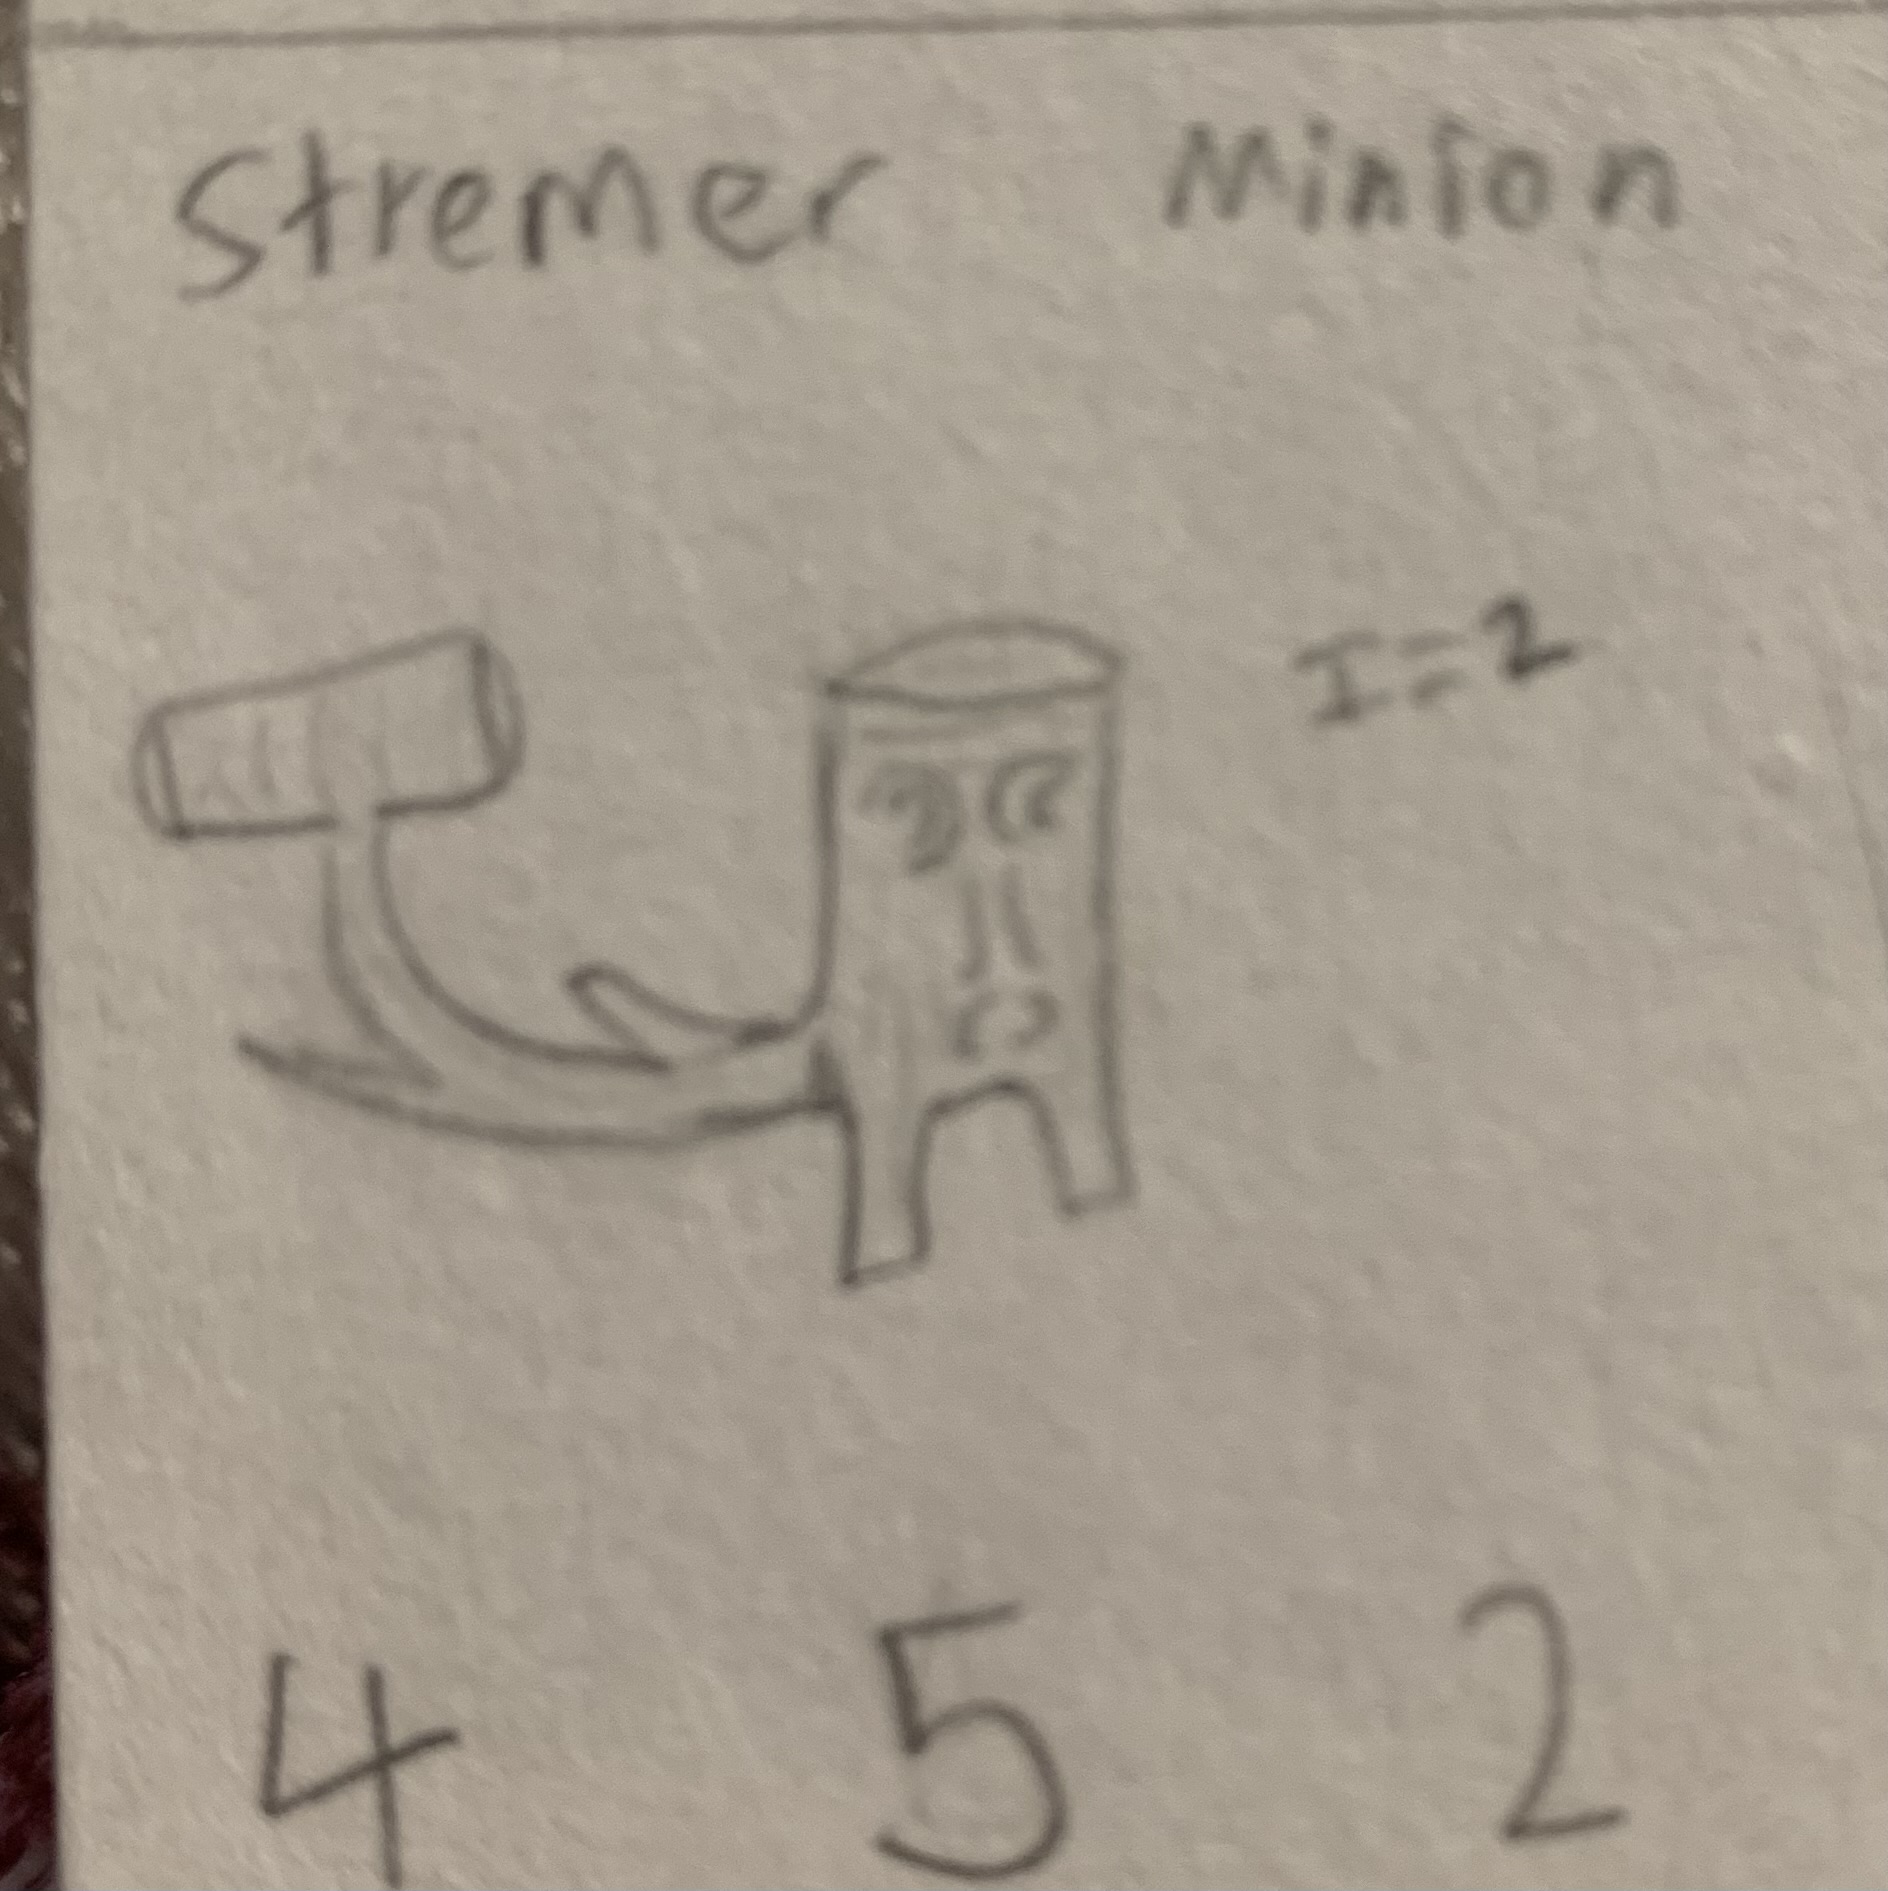 Stremer Minion
I=2
4 5 2